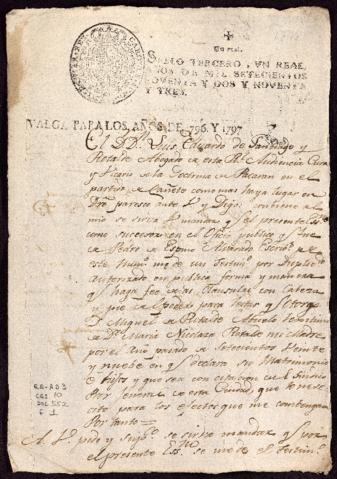 Un real.
SELLO TERCERO, VN REAL,
AÑOS DE MIL SETECIENTOS
NOVENTA Y DOS Y NOVENTA
Y TRES.
VALGA PARA LOS AÑOS DE 796. Y 1797
El D.D. Luis Eduardo de Santiago y
Rotalde Abogado de esta Rl. Audiencia Cura
y Vicario de la Doctrina de Pacaran en el
partido de Cañete como mas haya lugar en
Dro. paresco ante V. y Digo: conbiene a lo
mio se sirva V. mandar q. el presente Ess.no
como sucesor en el Oficio publico q. fue
de Pedro de Espino Alvarado Escrib.
este me de un Testim.o por duplicado
autorizado en publica forma y manera
q. haga fee de las Clausulas con Cabeza
y pie de Poder para testar q. otorgó
D. Miguel de Rotalde Abuelo
de D.a Maria Nicolasa Rotalde mi Madre
por el año pasado de Setecientos Veinte
y nuebe en q. declaro su Matrimonio
e hijos y que sea con citacion del Sindico
Por. General de esta Ciudad que lo nece-
cito para los efectos que me combengan
Por tanto
A V. pido y sup.co se sirva mandar q. por
el presente Ess.no se me de el Testim.o
RA-AD 3
CAJ 10
DOC 552
F 1